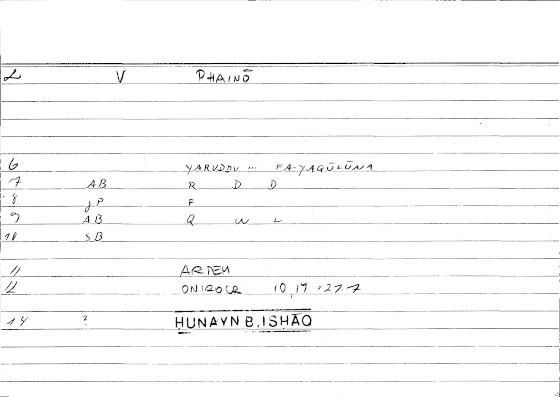 2 V PHAINŌ
6 YARUDDU ... FA-YAQŪLŪNA
7 AB R D D
8 JP F
9 AB Q W L
10 SB
11 ARTEM
12 ONIROCR 10,17 = 27.7
14 ? HUNAYN B. ISHĀQ